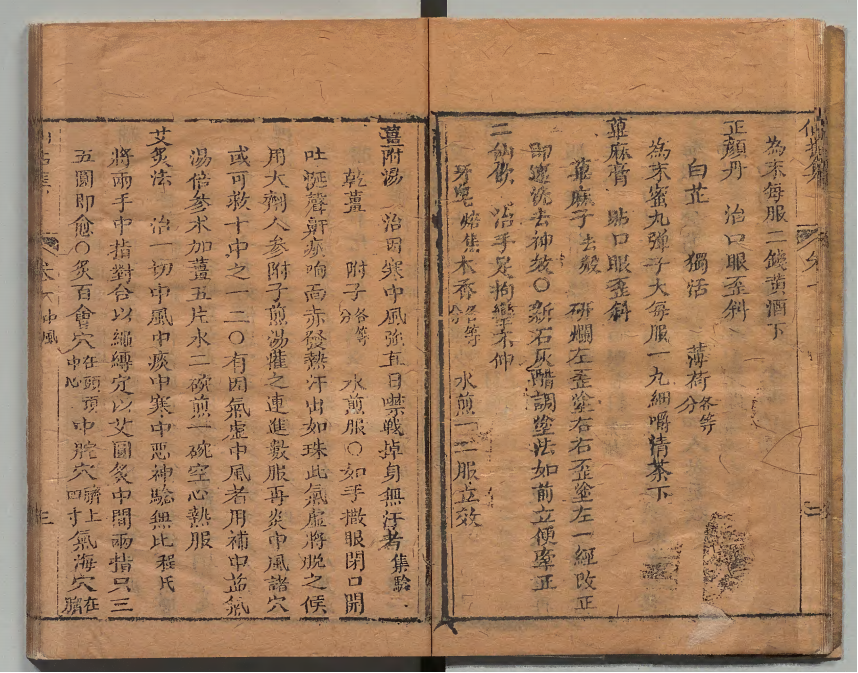 為末每服二錢黃酒下
正顏丹 治口眼歪斜
白芷 獨活 薄荷各等分
為末蜜丸彈子大每服一丸細嚼清茶下
萆麻膏 貼口眼歪斜
萆麻子去殼 研爛左歪塗右右歪塗左一經改正
即速洗去神效〇新石灰醋調塗法如前立便牽正
二仙飲 治手足拘攣不伸
焙焦木香各等分 水煎一二服立效
薑附湯 治因寒中風強直口噤戰掉身無汗者集驗
乾薑 附子各等分 水煎服〇如手撒眼閉口開
吐涎聲鼾痰响面赤發熱汗出如珠此氣虛將脫之候
用大劑人參附子煎湯灌之連進數服再灸中風諸穴
或可救十中之一二〇有因氣虛中風者用補中益氣
湯倍參朮加薑五片水二碗煎一碗空心熱服
艾灸法 治一切中風中痰中寒中惡神驗無比程氏
將兩手中指對合以繩縛定以艾圓灸中間兩指只三
五圓即愈〇灸百會穴在頭頂中心中脘穴臍上四寸氣海穴在臍
中風
三